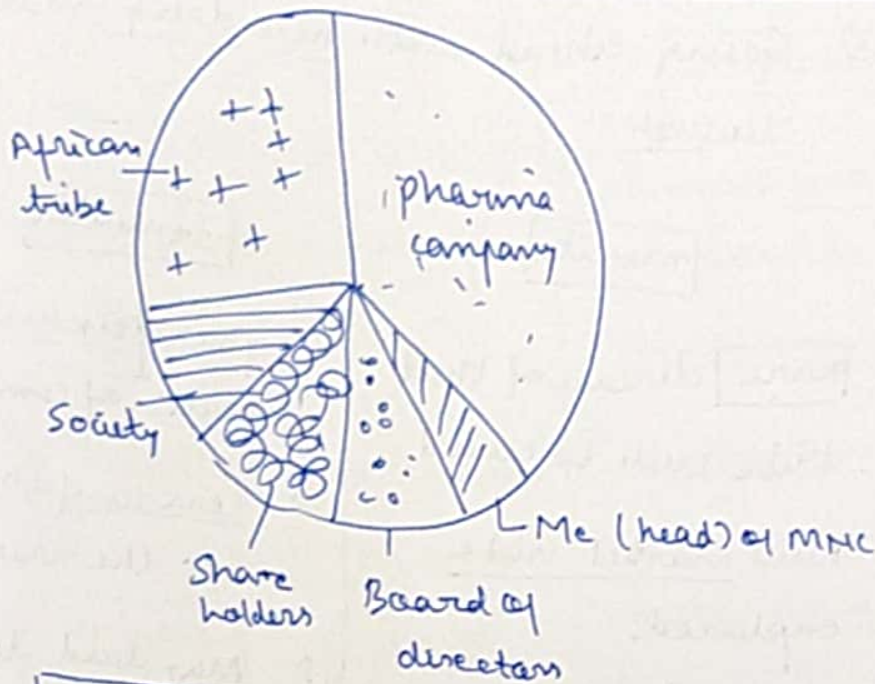 African
tribe
pharma
company
Society
Share
holders
Board of
directors
Me (head) of MNC